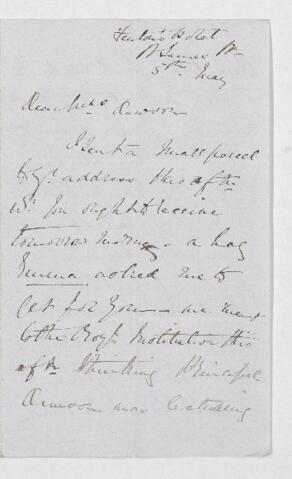 Fenton's Hotel
St James St
5th May
Dear Mrs Dawson
I sent a small parcel
to yr. address this aftn
wh. you ought to receive
tomorrow morng. a bag
Emma asked me to
get for you — we went
to the Royl Institution this
aftn thinking Principal
Dawson was lecturing